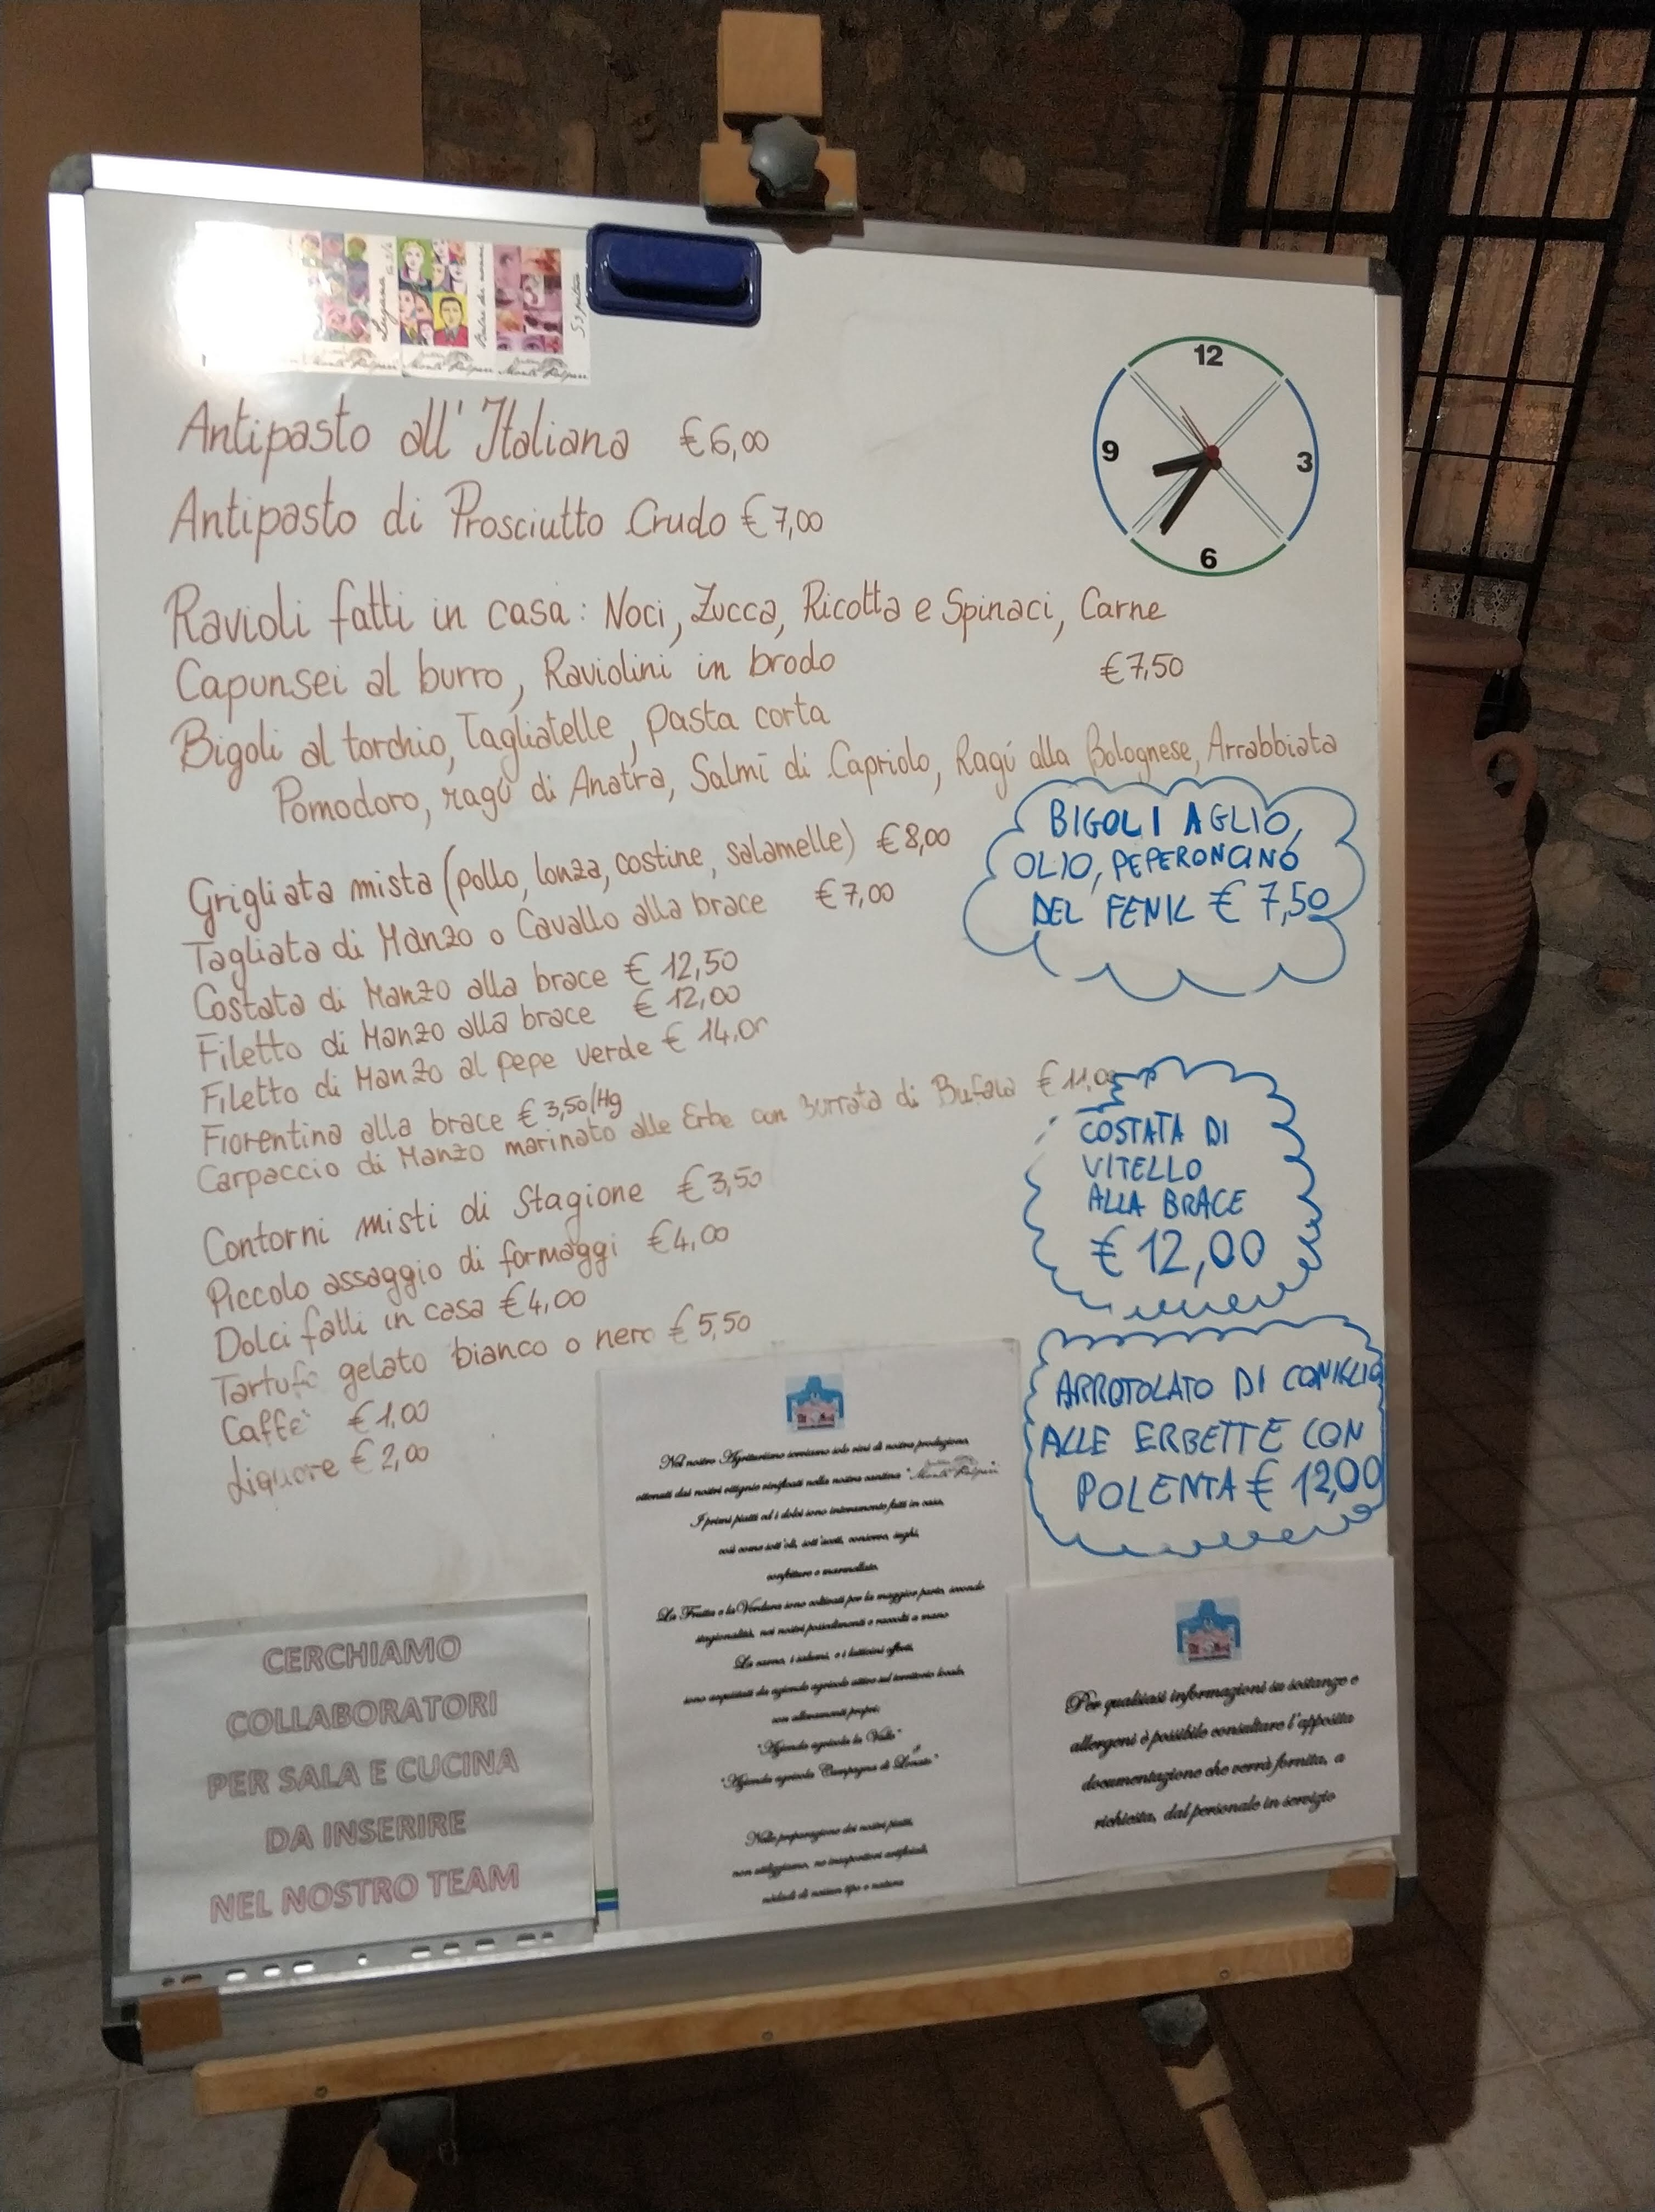 Lugana
Monte Pulpari
Monte Pulpari
Monte Pulpari
12
9
3
6
Antipasto all'Italiana €6,00
Antipasto di Prosciutto Crudo €7,00
Ravioli fatti in casa: Noci, Zucca, Ricotta e Spinaci, Carne
Capunsei al burro, Raviolini in brodo €7,50
Bigoli al torchio, Tagliatelle, pasta corta
Pomodoro, ragú di Anatra, Salmí di Capriolo, Ragú alla Bolognese, Arrabbiata
Grigliata mista (pollo, lonza, costine, salamelle) €8,00
Tagliata di Manzo o Cavallo alla brace €7,00
Costata di Manzo alla brace € 12,50
Filetto di Manzo alla brace € 12,00
Filetto di Manzo al pepe verde € 14,0
Fiorentina alla brace € 3,50/Hg
Carpaccio di Manzo marinato alle Erbe con Burrata di Bufala € 11,0
Contorni misti di Stagione €3,50
Piccolo assaggio di formaggi €4,00
Dolci fatti in casa €4,00
Tartufo gelato bianco o nero €5,50
Caffè €1,00
Liquore €2,00
BIGOLI AGLIO,
OLIO, PEPERONCINO
DEL FENIL € 7,50
COSTATA DI
VITELLO
ALLA BRACE
€ 12,00
ARROTOLATO DI CONIGLIO
ALLE ERBETTE CON
POLENTA € 12,00
CERCHIAMO
COLLABORATORI
PER SALA E CUCINA
DA INSERIRE
NEL NOSTRO TEAM
Nel nostro Agriturismo serviamo solo vini di nostra produzione,
ottenuti dai nostri vitigni e vinificati nella nostra cantina "Monte Pulpari"
I primi piatti ed i dolci sono interamente fatti in casa,
così come sott'oli, sott'aceti, conserve, sughi,
confetture e marmellate.
La Frutta e la Verdura sono coltivati per la maggior parte, secondo
stagionalità, nei nostri possedimenti e raccolti a mano
La carne, i salumi, e i latticini offerti,
sono acquistati da aziende agricole attive sul territorio locale,
con allevamenti propri:
"Azienda agricola la Valle"
"Azienda agricola Campagna di Lonato"
Nella preparazione dei nostri piatti,
non utilizziamo, ne insaporitori artificiali,
nè dadi di nessun tipo o natura
Per qualsiasi informazioni su sostanze e
allergeni è possibile consultare l'apposita
documentazione che verrà fornita, a
richiesta, dal personale in servizio